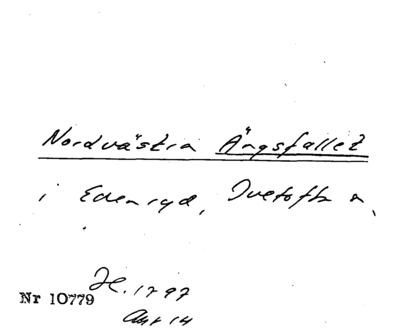 Nordvästra Ängsfallet
i Edenryd, Ivetofta s,
Nr 10779 H. 1797
Akt 14